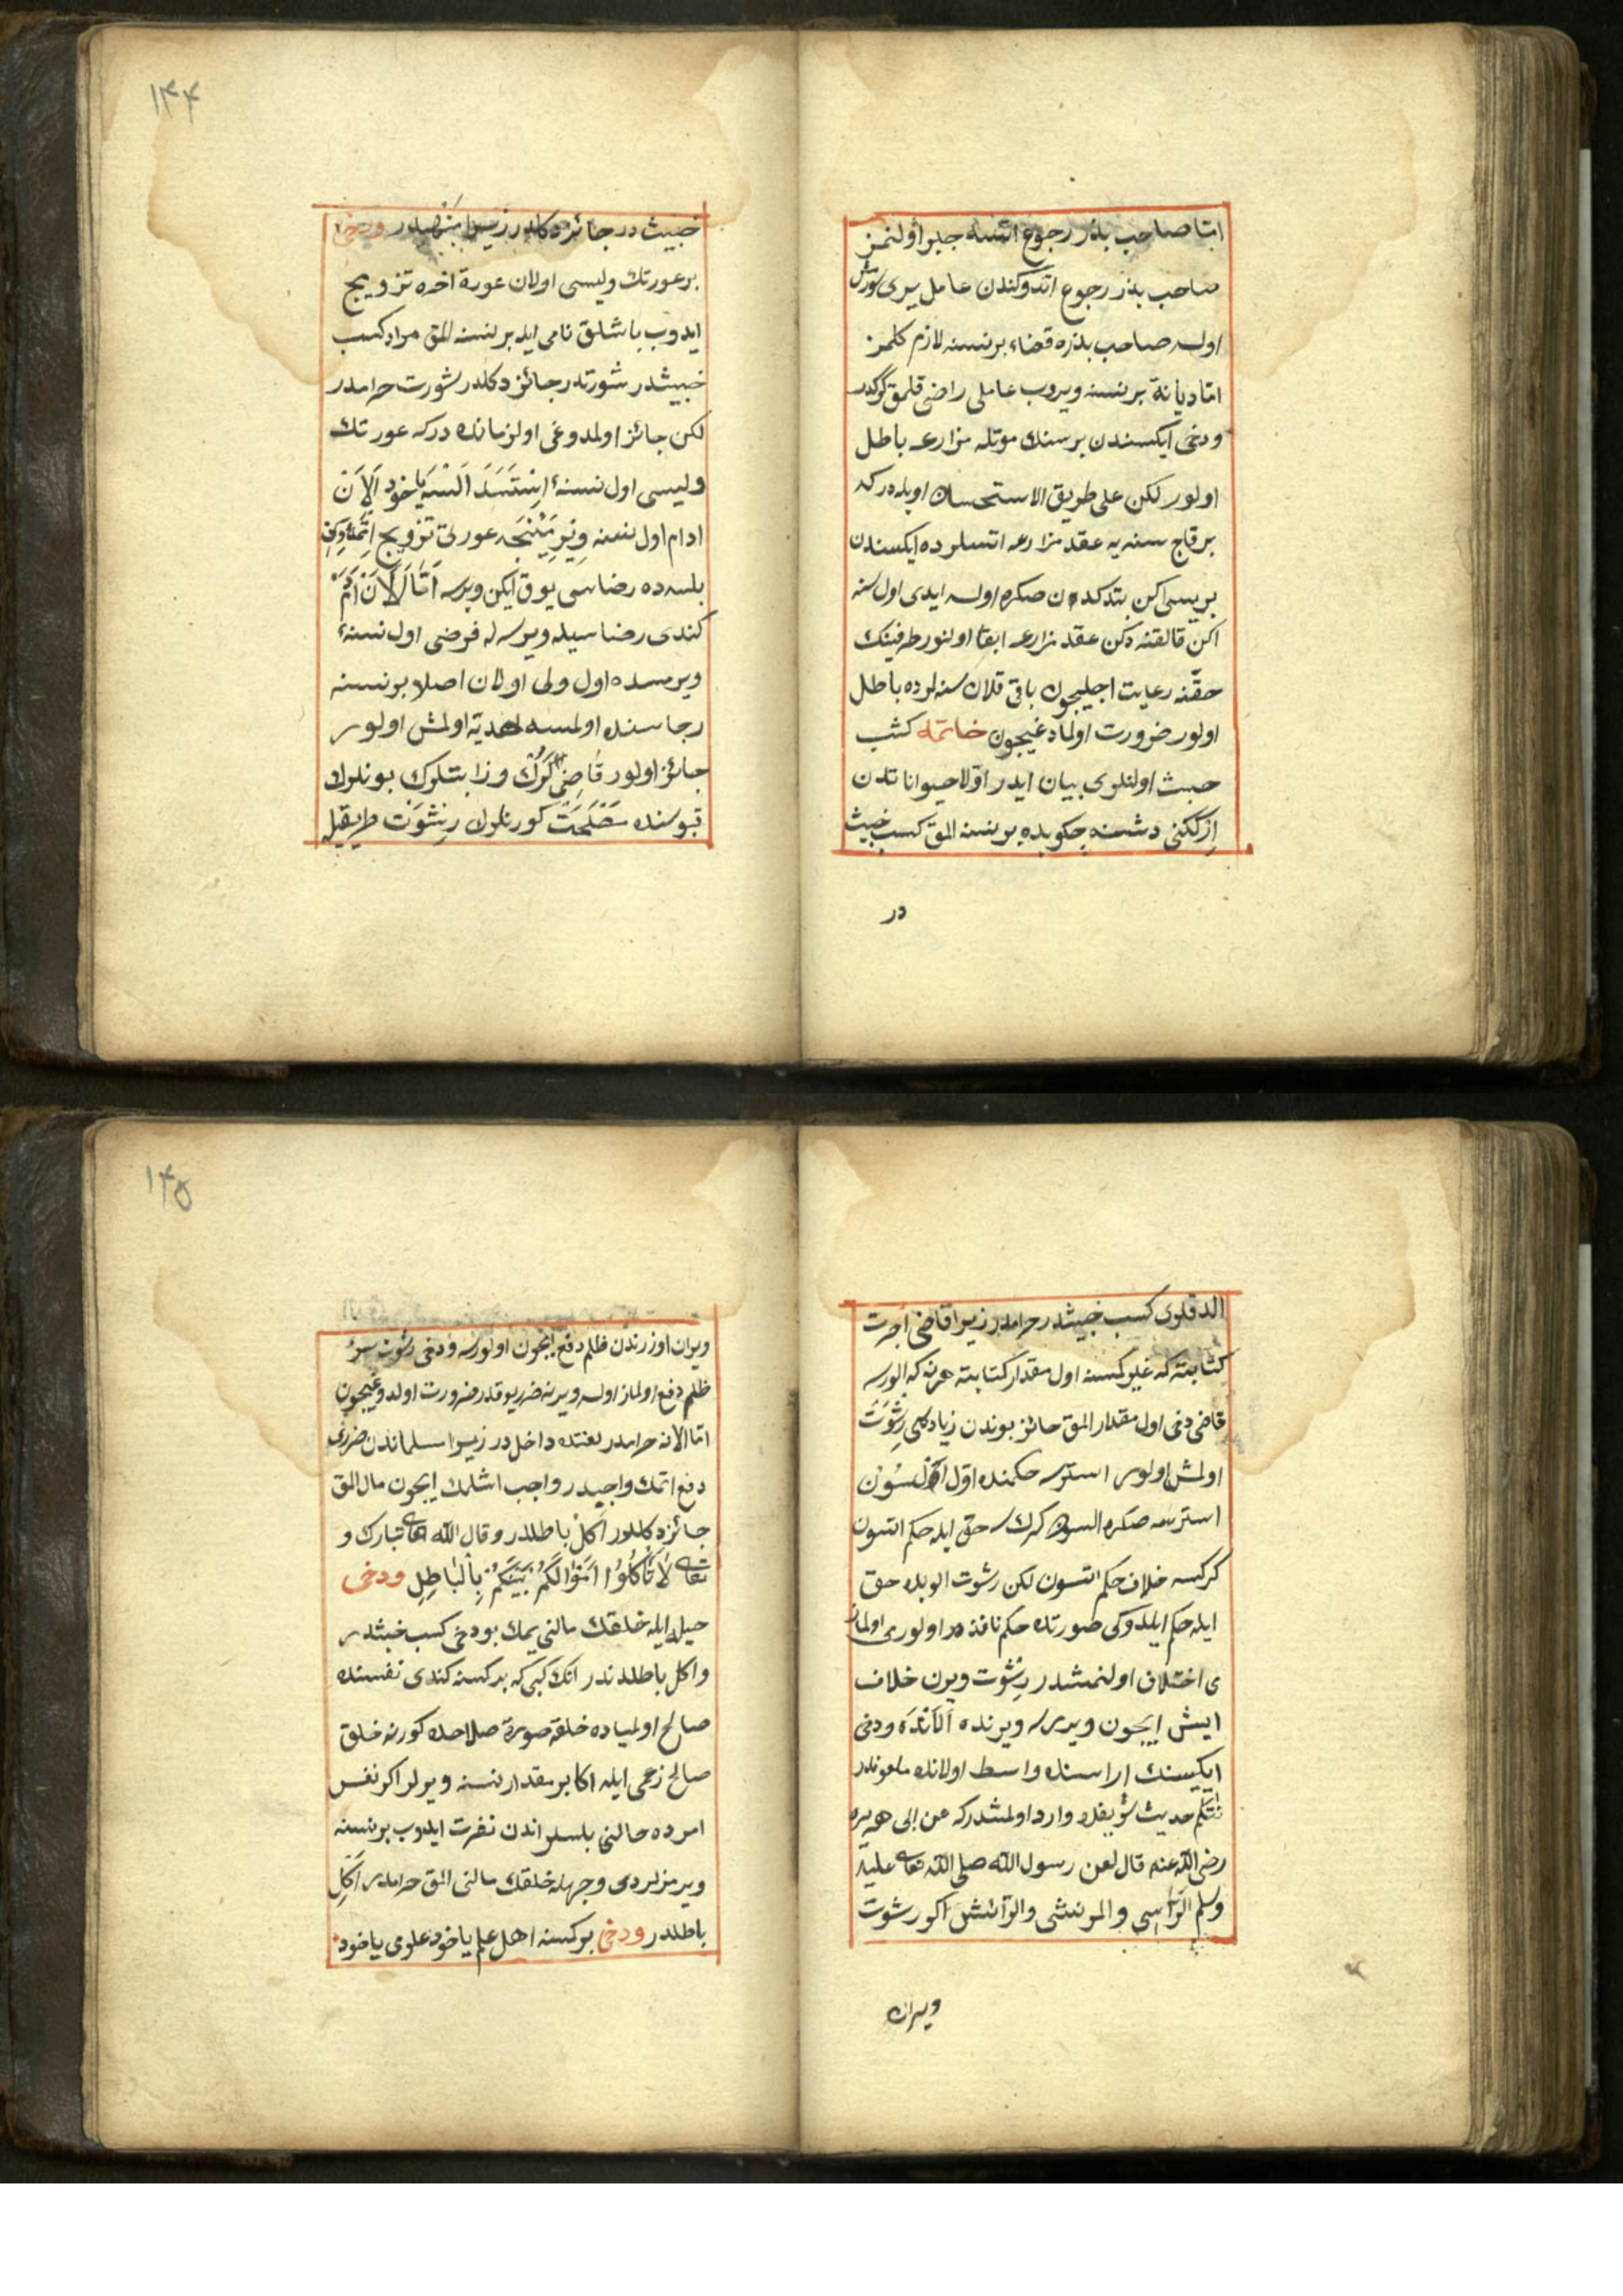 امّا صاحب بذر رجوع اتسه جبر اولنمز
صاحب بذر رجوع اتدوكندن عامل يرى سورمش
اولسه صاحب بذره قضاء برنسنه لازم كلمز
امّا ديانة برنسنه ويروب عاملى راضى قلمق كركدر
ودخى ايكسندن برسنك موتله مزارعه باطل
اولور لكن على طريق الاستحسان اويله در كه
برقاج سنه يه عقد مزارعه اتسلرده ايكسندن
بريسى اكن بتدكدن صكره اولسه ايدى اول سنه
اكن قالقنه دكن عقد مزارعه ابقا اولنور طرفينك
حقّنه رعايت اجليچون باقى قلان سنه لرده باطل
اولور ضرورت اولمادغيچون خاتمه كسب
خبيث اولنلرى بيان ايدر اوّلا حيواناتدن
اركگنى دشسنه چكوبده برنسنه المق كسب خبيث
در
١٤٤
خبيث در جائز دكلدر زيرا منهيدر ودخى
بر عورتك وليسى اولان عورة اخره تزويج
ايدوب باشلق نامى ايله برنسنه المق مراد كسب
خبيثدر شورتدر جائز دكلدر شورت حرامدر
لكن جائز اولمدوغى اول زمانده در كه عورتك
وليسى اول نسنهٔ اِسْتَسَهَ اَلْسَه يَاخود اَلاَنْ
ادام اول نسنه وِيْرِمَيِنْجَه عورتى تزويج
بلسه ده رضاسى يوق ايكن ويرسه اَمَّا اَلاَنْ اَدَمْ
كندى رضاسيله ويرسه له فرضى اول نسنهٔ
ويرمسده اول ولى اولان اصلا برنسنه
رجاسنده اولمسه هدية اولمش اولور
جائز اولور قَاضِى كَرَكْ وزابتلرك بونلرك
قپوسنده مَصْلَحَتْ كورنلرك رِشْوَتْ طريقيله
الدقلرى كسب خبيثدر حرامدر زيرا قاضى اجرت
كتابته كه غيرى كسنه اول مقدار كتابته هر نه كه الورسه
قاضى دخى اول مقدار المق جائز بوندن زياده سى رِشْوَتَ
اولمش اولور استرسه حكمنده اوّل السُوْن
استرسه صكره السون كرك حق ايله حكم اتسون
كركسه خلاف حكم اتسون لكن رشوت الوبده حق
ايله حكم ايلدوكى صورتده حكم نافذ در اولورمى اولماز
مى اختلاف اولنمشدر رِشْوت ويرن خلاف
ايش ايچون ويررسه ويرنده اَلاَنْدَه ودخى
ايكيسنك اراسنده واسط اولانده ملعوندر
نتكم حديث شريفده وارد اولمشدركه عن ابى هريره
رضى اللّه عنه قال لعن رسول اللّه صلى اللّه تعالى عليه
وسلم الرَّاشِي والمرتشى والرّائش اكر رشوت
ويران
١٤٥
ويران اوزرندن ظلم دفع ايچون اولورسه ودخى رشوتسز
ظلم دفع اولماز اولسه ويرنه ضرر يوقدر ضرورت اولدوغيچون
امّا الانه حرامدر لعنتده داخل در زيرا مسلماندن ضررى
دفع اتمك واجبدر واجب اشلمك ايچون مال المق
جائز دكلدور اَكْلْ باطلدر وقال اللّه تعالى تبارك و
تعالى لاَ تَأْكُلُوا اَمْوَالَكُمْ بَيْنَكُمْ بِالْبَاطِلِ ودخى
حيله ايله خلقك مالنى يمك بودخى كسب خبيثدر
واكل باطلدندر انك كبى كه بركسنه كندى نفسنده
صالح اولمياده خلقه صورة صلاحده كورنه خلق
صالح زعمى ايله اكا بر مقدار نسنه ويرلر اكر نفس
امرده حالنى بلسلر اندن نفرت ايدوب برنسنه
ويرمزلردى وجهله خلقك مالنى المق حرامدر اَكْلِ
باطلدر ودخى بركسنه اهل علم ياخود علوى ياخود